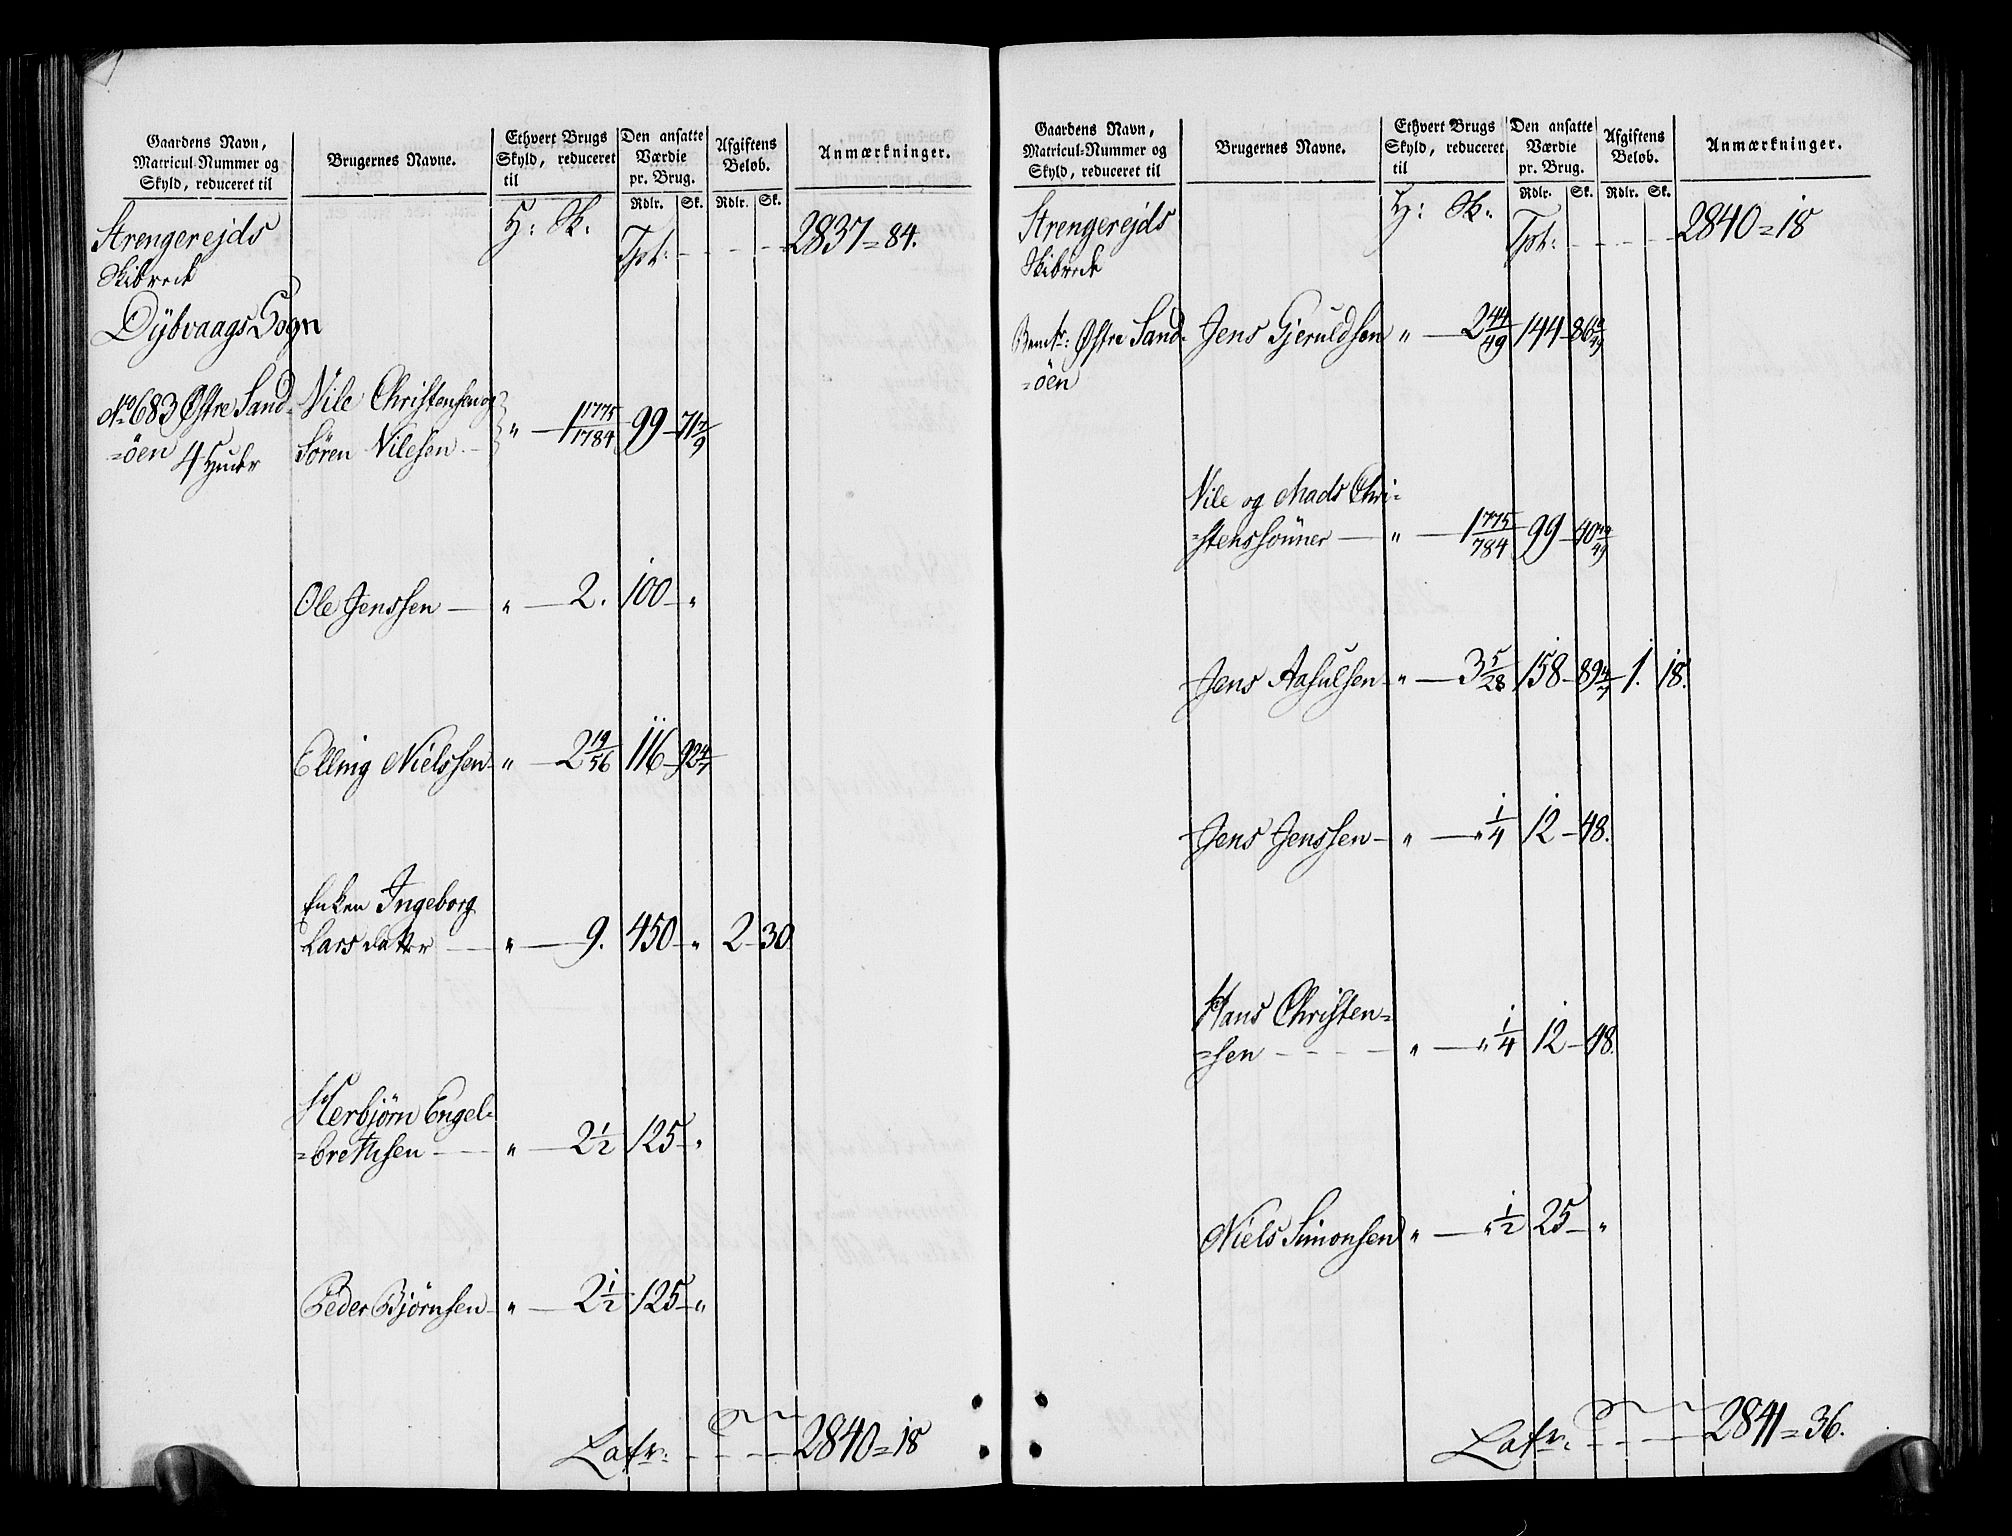 Gaardens Navn, Matricul-Nummer og Skyld, reduceret til | Brugernes Navne. | Ethvert Brugs Skyld, reduceret til | Den ansatte Værdie pr. Brug. | Afgiftens Beløb. | Anmærkninger.
Rdlr. Sk. Rdlr. Sk.
Strengerejds H: Sk. Tpt: - - - - 2837 = 84.
Skibrede
Dybvaags Sogn
No 683 Østre Sand- Nile Christensen og
=öen 4 Huder Sören Nilesen - " — 1 1775/1784 99 - 71 7/9
Ole Jenssen — " — 2. 100 - "
Elling Nielssen - " — 2 19/56 116 - 92 4/7
Enken Ingeborg
Lars datter — " — 9. 450 - " 2 - 30
Herbjørn Engel-
=brethsen — " — 2 1/2 125 - "
Peder Bjørnsen - " — 2 1/2 125 - "
Latr: - - - 2840 = 18
Gaardens Navn, Matricul-Nummer og Skyld, reduceret til | Brugernes Navne. | Ethvert Brugs Skyld, reduceret til | Den ansatte Værdie pr. Brug. | Afgiftens Beløb. | Anmærkninger.
Rdlr. Sk. Rdlr. Sk.
Strengerejds H: Sk. Tpt: - - - - 2840 = 18
Skibrede
Østre Sand- Jens Gjeruldsen " — 2 44/49 144 - 86
=öen
Nile og Mads Chri-
=stenssönner — " — 1 775/784 99 - 40
Jens Aasulsen - " — 3 5/28 158 - 89 4/7 1. 18.
Jens Jenssen - " — " 1/4 12 - 48.
Hans Christen=
=sen - - - - " — " 1/4 12 - 48.
Niels Simonsen " — " 1/2 25 - "
Latr: - - - 2841 = 36.